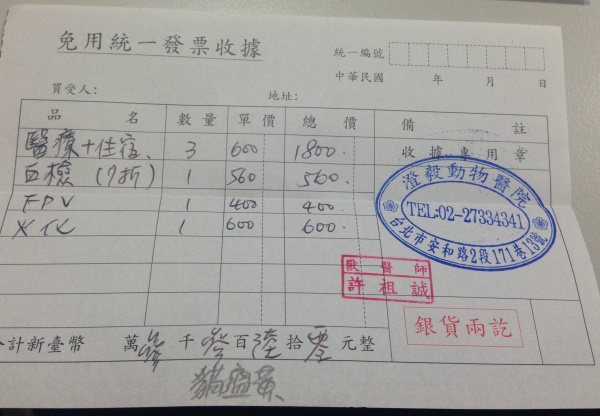 免用統一發票收據
統一編號
中華民國 年 月 日
買受人: 地址:
品名 數量 單價 總價 備註
醫療+住宿、 3 600 1800.
血檢(7折) 1 560 560.
FPV 1 400 400.
火化 1 600 600.
收據專用章
澄毅動物醫院
TEL:02-27334341
台北市安和路2段171巷13號
獸醫師
許祖誠
銀貨兩訖
合計新臺幣 萬 參 千 參 百 陸 拾 零 元整
貓盛黃